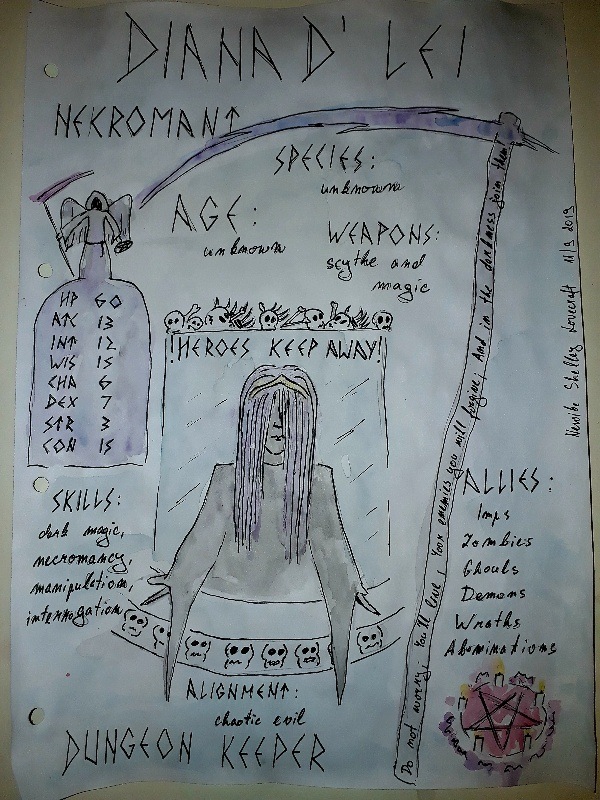 DIANA D' LEI
NEKROMANT
SPECIES:
unknown
AGE:
unknown
WEAPONS:
scythe and
magic
HP 60
ATK 13
INT 12
WIS 15
CHA 6
DEX 7
STR 3
CON 15
!HEROES KEEP AWAY!
SKILLS:
dark magic,
necromancy,
manipulation,
interrogation
ALLIES:
Imps
Zombies
Ghouls
Demons
Wraths
Abominations
Do not worry, You'll live, Your enemies you will forgive, And in the darkness join them!
Shelley Lovecraft 11/3 2019
ALIGNMENT:
chaotic evil
DUNGEON KEEPER